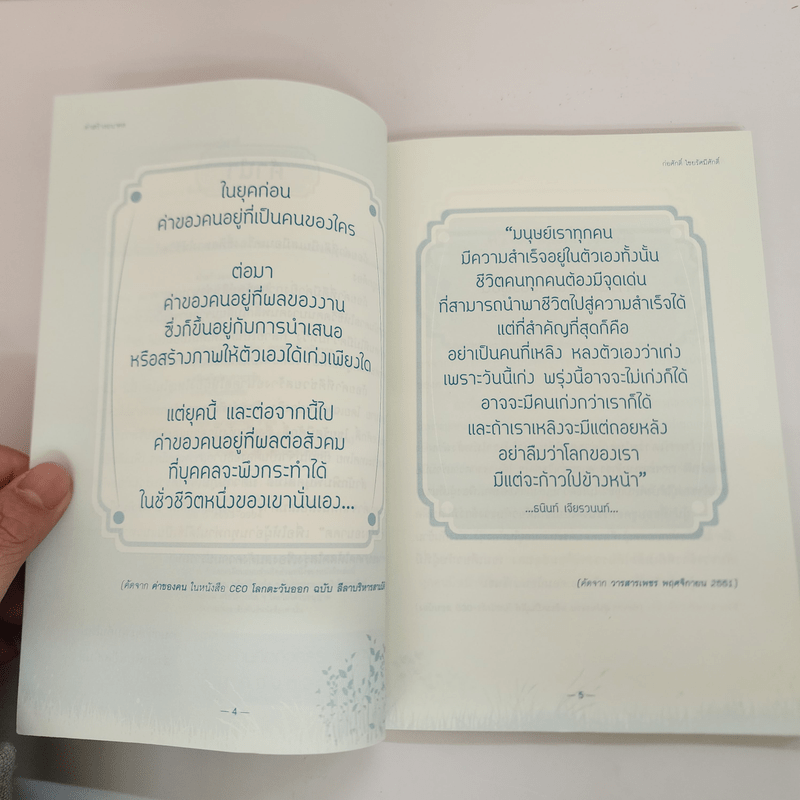 ในยุคก่อน
ค่าของคนอยู่ที่เป็นคนของใคร
ต่อมา
ค่าของคนอยู่ที่ผลของงาน
ซึ่งก็ขึ้นอยู่กับการนำเสนอ
หรือสร้างภาพให้ตัวเองได้เก่งเพียงใด
แต่ยุคนี้ และต่อจากนี้ไป
ค่าของคนอยู่ที่ผลต่อสังคม
ที่บุคคลจะพึงกระทำได้
ในชั่วชีวิตหนึ่งของเขานั่นเอง...
(คัดจาก ค่าของคน ในหนังสือ CEO โลกตะวันออก ฉบับ ลีลาบริหารสาม
— 4 —
ก่อศักดิ์ ไชยรัศมีศักดิ์
“มนุษย์เราทุกคน
มีความสำเร็จอยู่ในตัวเองทั้งนั้น
ชีวิตคนทุกคนต้องมีจุดเด่น
ที่สามารถนำพาชีวิตไปสู่ความสำเร็จได้
แต่ที่สำคัญที่สุดก็คือ
อย่าเป็นคนที่เหลิง หลงตัวเองว่าเก่ง
เพราะวันนี้เก่ง พรุ่งนี้อาจจะไม่เก่งก็ได้
อาจจะมีคนเก่งกว่าเราก็ได้
และถ้าเราเหลิงจะมีแต่ถอยหลัง
อย่าลืมว่าโลกของเรา
มีแต่จะก้าวไปข้างหน้า”
...ธนินท์ เจียรวนนท์...
(คัดจาก วารสารเพชร พฤศจิกายน 2551)
— 5 —